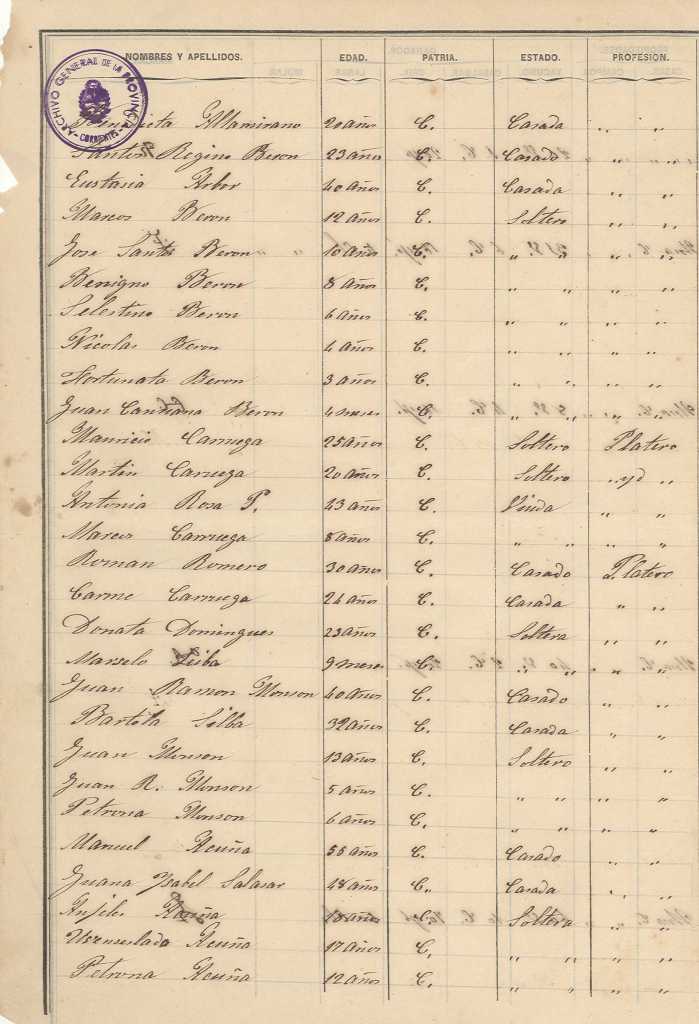 NOMBRES Y APELLIDOS. EDAD. PATRIA. ESTADO. PROFESION.
ARCHIVO GENERAL DE LA PROVINCIA - CORRIENTES -
Altamirano 20 años C. Casada " "
Santos Regino Beron 23 años C. Casado " "
Eustacia Arbor 40 años C. Casada " "
Marcos Beron 12 años C. Soltero " "
Jose Santos Beron 10 años C. " " " "
Benigno Beron 8 años C. " " " "
Selestino Beron 6 años C. " " " "
Nicolas Beron 4 años C. " " " "
Fortunata Beron 3 años C. " " " "
Juan Beron 4 meses C. " " " "
Mauricio Carruega 25 años C. Soltero Platero
Martin Carruega 20 años C. Soltero " yd "
Antonia Rosa P. 43 años C. Viuda " "
Marcos Carruega 8 años C. " " " "
Roman Romero 30 años C. Casado " Platero
Carme Carruega 24 años C. Casada " "
Donata Domingues 23 años C. Soltera " "
Marselo Leiba 9 meses C. " " " "
Juan Ramon Monson 40 años C. Casado " "
Bartola Silba 32 años C. Casada " "
Juan Monson 13 años C. Soltero " "
Juan R. Monson 5 años C. " " " "
Petrona Monson 6 años C. " " " "
Manuel Acuña 55 años C. Casado " "
Juana Ysabel Salasar 48 años C. Casada " "
Anjeles Acuña 18 años C. Soltera " "
Wensenslada Acuña 17 años C. " " " "
Petrona Acuña 12 años C. " " " "